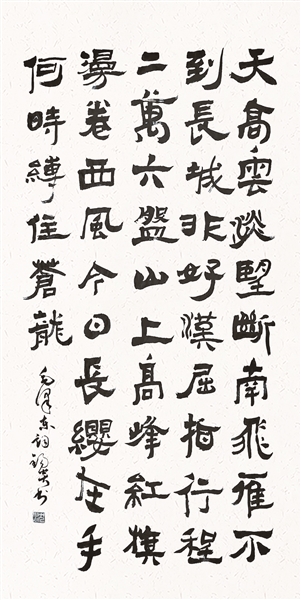 天高雲淡望斷南飛雁不
到長城非好漢屈指行程
二萬六盤山上高峰紅旗
漫卷西風今日長纓在手
何時縛住蒼龍
毛澤東詞